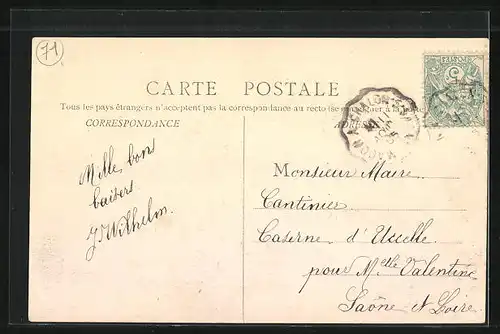 71
CARTE POSTALE
Tous les pays étrangers n'acceptent pas la correspondance au recto (se
CORRESPONDANCE
MACON A CHALON-S-S
Mille bons
baisers
J Wilhelm.
Monsieur Maire
Cantinier
Caserne d'Uxelle
pour Mlle Valentine
Saône et Loire